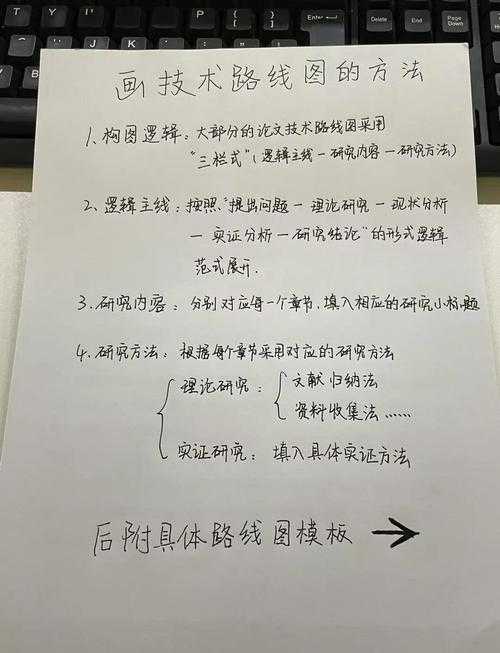 画技术路线图的方法
1、构图逻辑：大部分的论文技术路线图采用
"三栏式"（逻辑主线－研究内容－研究方法）
2、逻辑主线：按照、"提出问题－理论研究－现状分析
－实证分析－研究结论"的形式逻辑
范式展开.
3、研究内容：分别对应每一个章节、填入相应的研究小标题
4、研究方法：根据每个章节采用对应的研究方法
理论研究：文献归纳法
资料收集法……
实证研究：填入具体实证方法
后附具体路线图模板 →
Y U I O P
J K L
Delete End Page Down